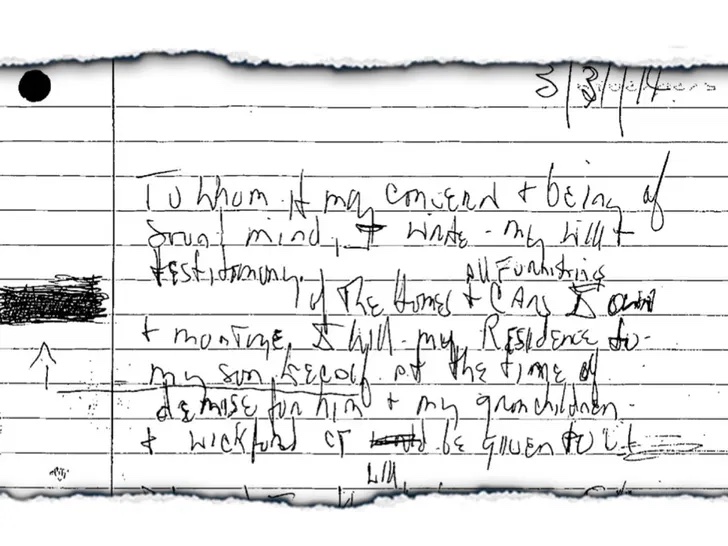 3/31/14
To Whom it may concern & being of
sound mind, I write my will &
testimony.
all Furnishings
of The Homes & CARs I own
& mortgage, I will my Residence to
my son Kecalf at the time of
demise for him & my granchildren
& wickford ct be given to
will